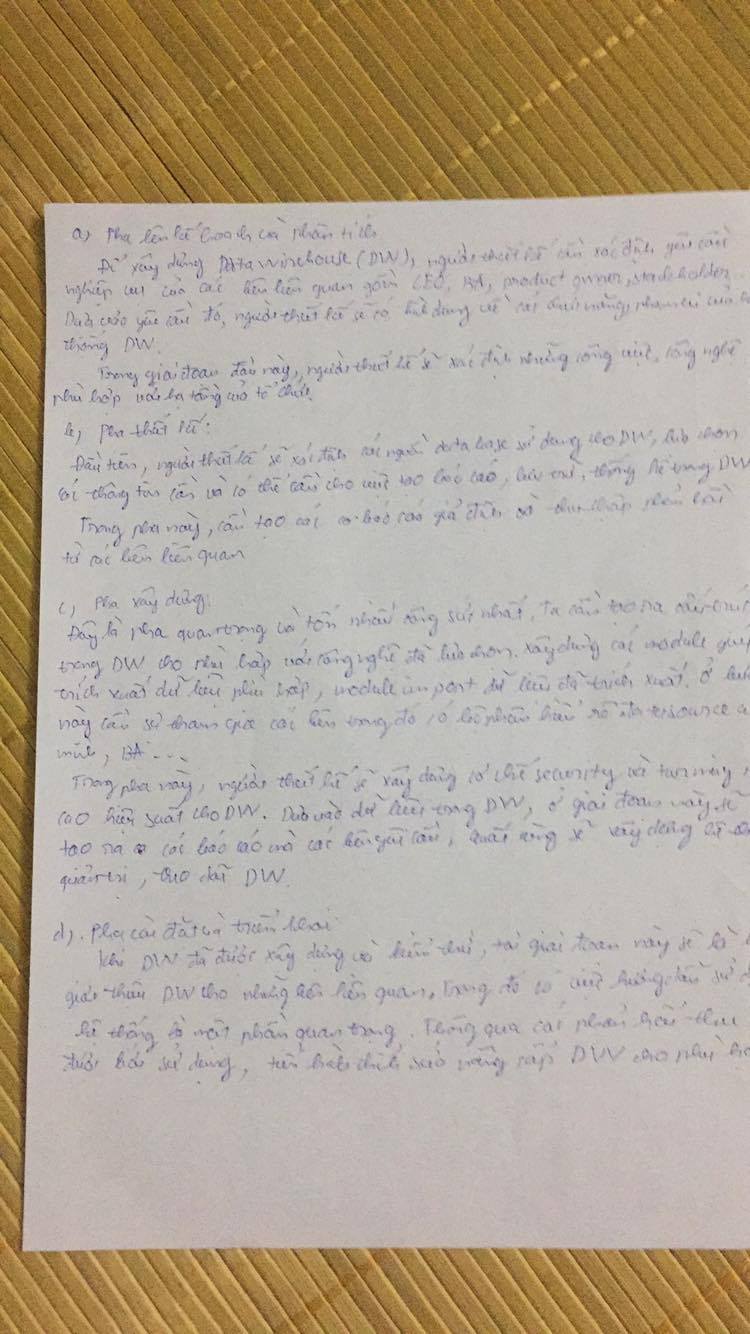 a) Pha lên kế hoạch và phân tích
Để xây dựng Data Wirehouse (DW), người thiết kế cần xác định yêu cầu
nghiệp vụ của các bên liên quan gồm CEO, BA, product owner, stackeholder
Dựa vào yêu cầu đó, người thiết kế sẽ có hình dung về các chức năng, phạm vi của
thống DW.
Trong giai đoạn đầu này, người thiết kế sẽ xác định những công việc, công nghệ
phù hợp với hạ tầng của tổ chức.
b, Pha thiết kế:
Đầu tiên, người thiết kế sẽ xác định các nguồn database sử dụng cho DW, lựa chọn
các thông tin cần và có thể cần cho việc tạo báo cáo, lưu trữ, thống kê trong DW
Trong pha này, cần tạo các báo cáo giả định và thu thập phản hồi
từ các bên liên quan
c, Pha xây dựng:
Đây là pha quan trọng và tốn nhiều công sức nhất, ta cần tạo ra cấu trúc
trong DW cho phù hợp với công nghệ đã lựa chọn. Xây dựng các module
trích xuất dữ liệu phù hợp, module import dữ liệu đã trích xuất. Ở
này cần sự tham gia các bên trong đó có bộ phận hiểu rõ
mình, BA...
Trong pha này, người thiết kế sẽ xây dựng cơ chế security và
cao hiệu suất cho DW. Dựa vào dữ liệu trong DW, ở giai đoạn này sẽ
tạo ra các báo cáo mà các bên yêu cầu, cuối cùng sẽ xây dựng hệ
quản trị, theo dõi DW.
d). Pha cài đặt và triển khai
Khi DW đã được xây dựng và kiểm thử, tại giai đoạn này sẽ là
giới thiệu DW cho những bên liên quan, trong đó có việc hướng dẫn sử
hệ thống là một phần quan trọng. Thông qua các phản hồi thu
được bởi sử dụng, tiến hành chỉnh sửa nâng cấp DW cho phù